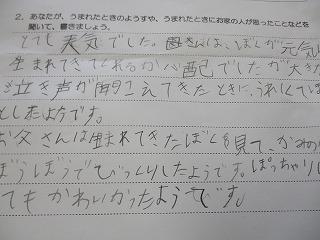 2. あなたが、うまれたときのようすや、うまれたときにお家の人が思ったことなどを
聞いて、書きましょう。
とても天気でした。お母さんは、ぼくが元気に
生まれてきてくれるか心配でしたが大き
泣き声が聞こえてきたときに、うれしくては
としたようです。
お父さんは生まれてきたぼくを見て、かみの
ぼうぼうでびっくりしたようです。ぽっちゃり
てもかわいかったようです。